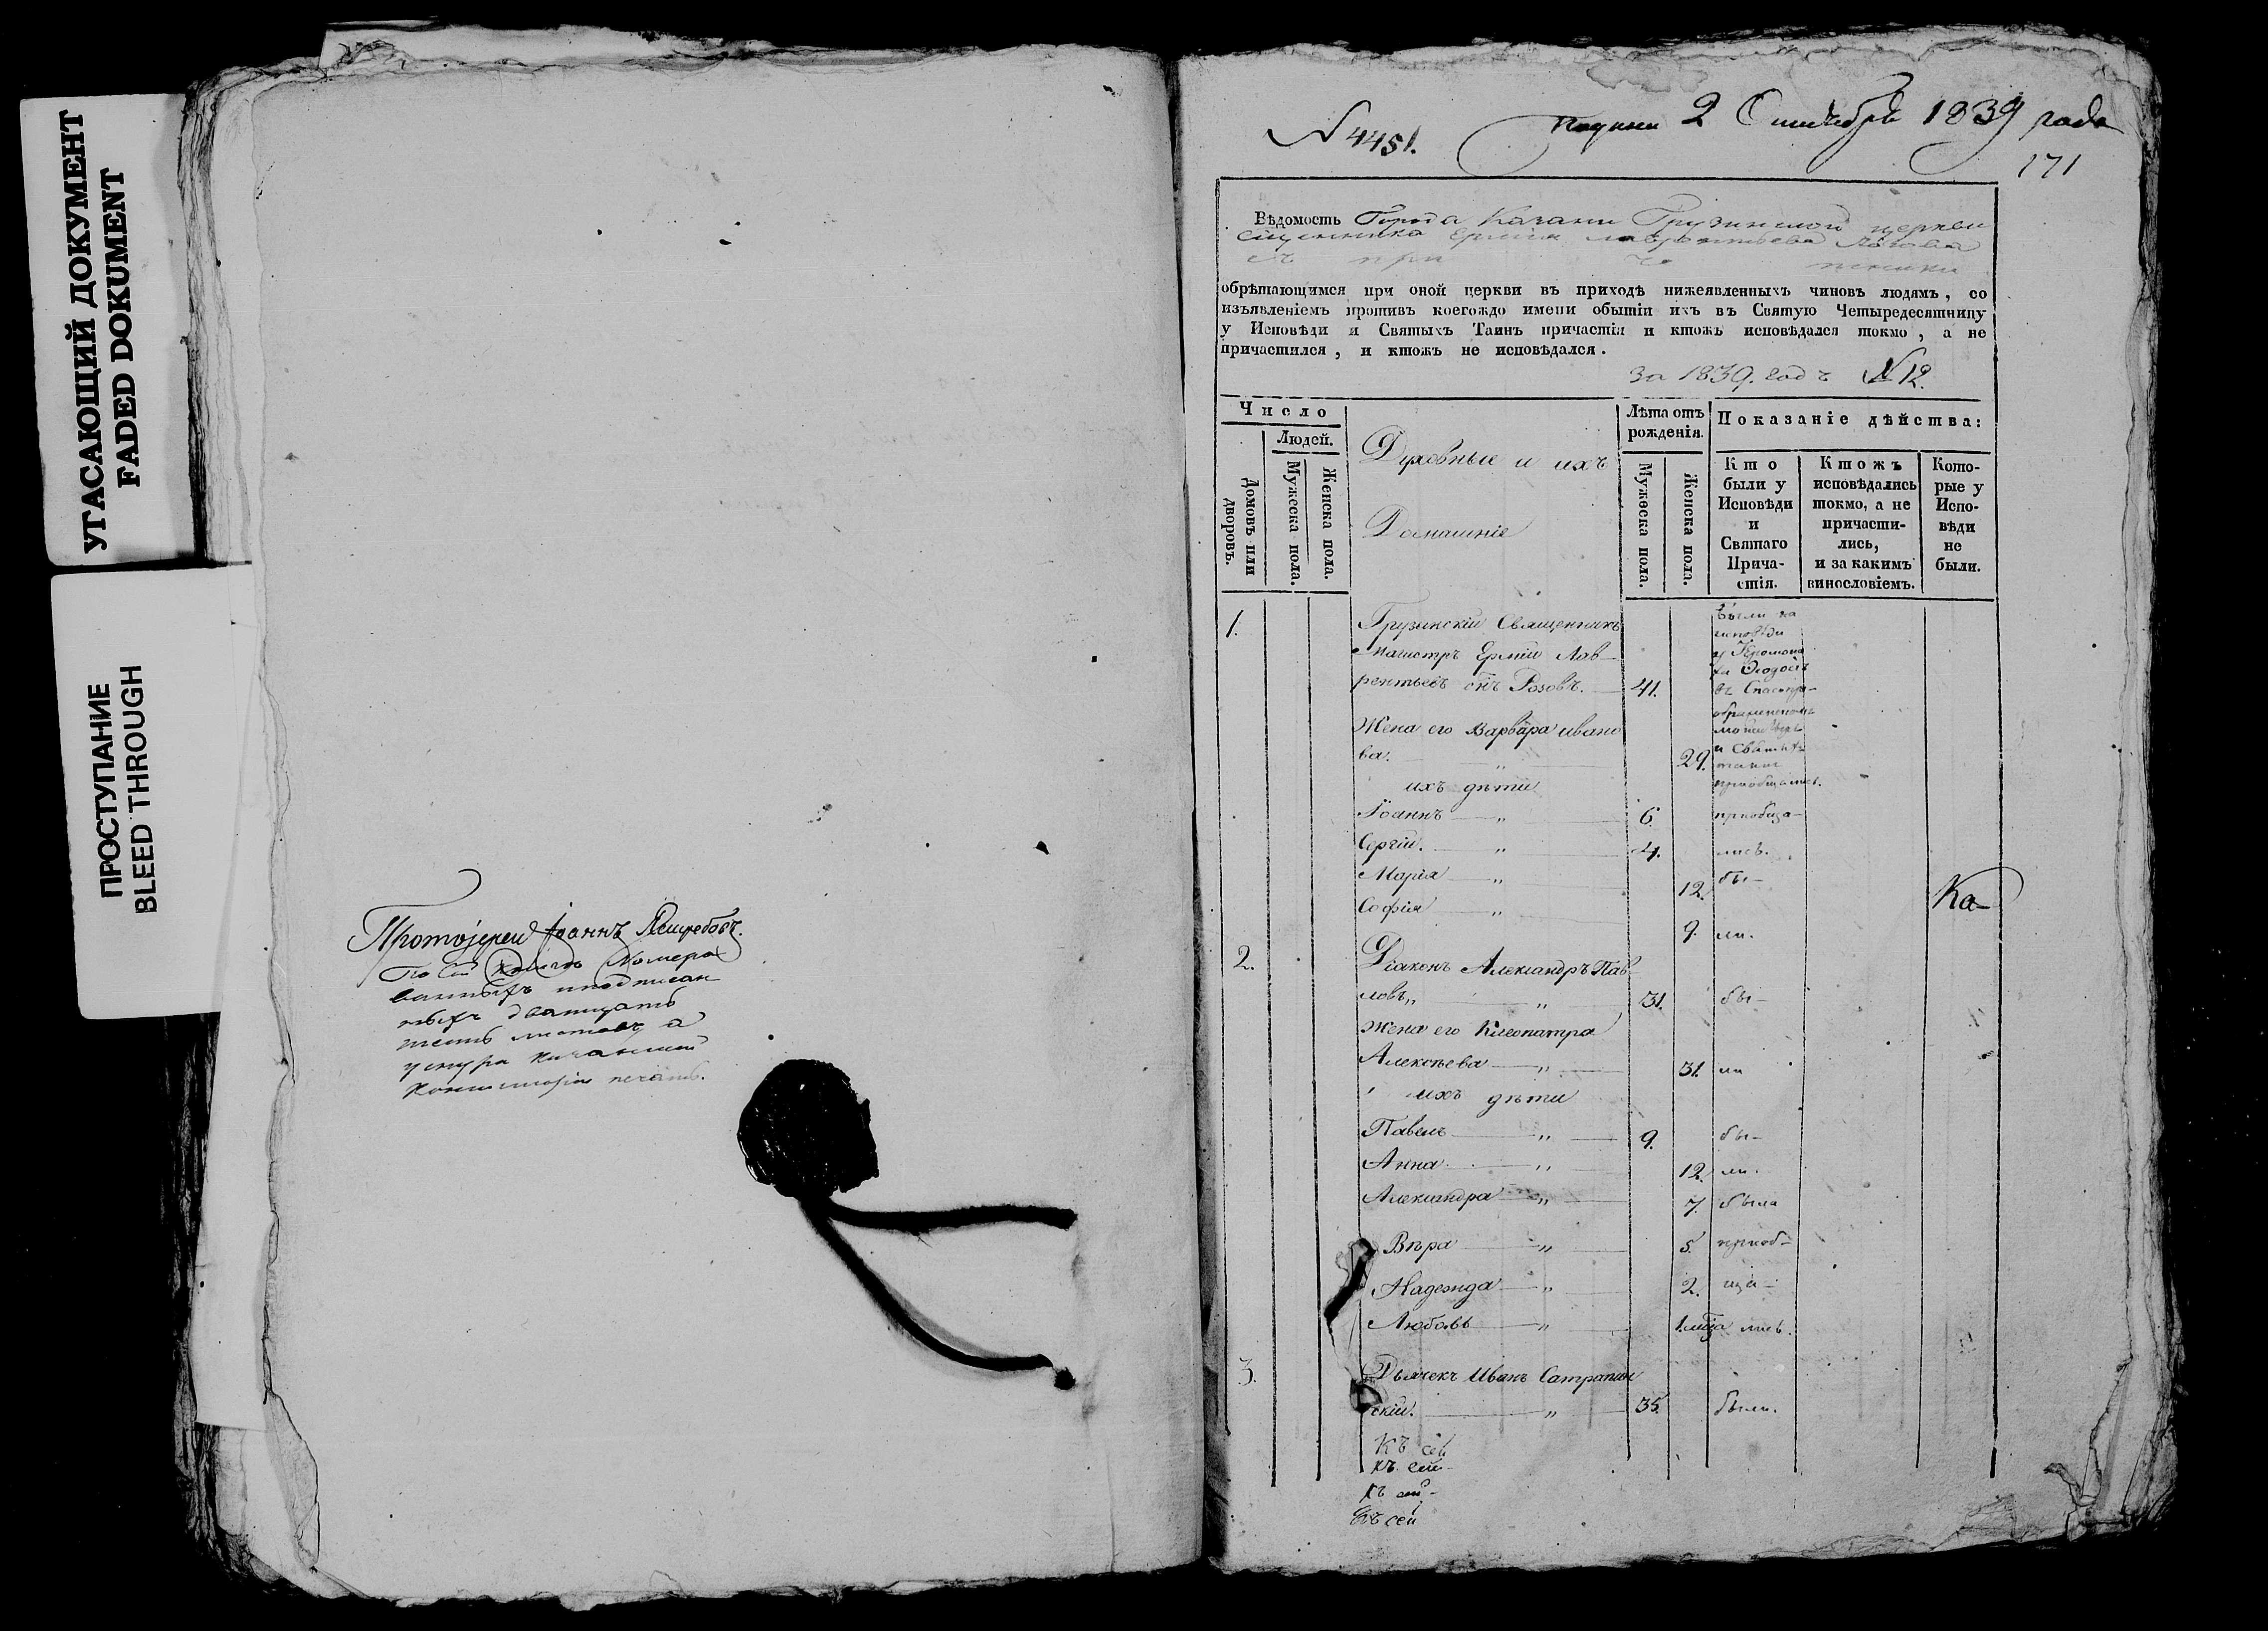 УГАСАЮЩИЙ ДОКУМЕНТ
FADED DOKUMENT
ПРОСТУПАНИЕ
BLEED THROUGH
Протоіерей Іоаннъ Ястребовъ.
номеро
ванныхъ и подписан
ныхъ двадцать
листовъ а
у снура
Консисторіи печать.
N 4451.
2 1839 года
171
Вѣдомость Города Казани Грузинской церкви
священника Ермія Лаврентьева Розова
съ при че тники
обрѣтающимся при оной церкви въ приходѣ нижеявленныхъ чиновъ людямъ, со
изъявленіемъ противъ коегождо имени обытіи ихъ въ Святую Четыредесятницу
у Исповѣди и Святыхъ Таинъ причастія и ктожъ исповѣдался токмо, а не
причастился, и ктожъ не исповѣдался.
за 1839. годъ N 12.
Число
Людей.
Домовъ или дворовъ.
Мужеска пола.
Женска пола.
Духовные и ихъ
Домашніе
Лѣта отъ
рожденія.
Мужеска пола.
Женска пола.
Показаніе дѣйства:
Кто
были у
Исповѣди
и
Святаго
Прича-
стія.
Ктожъ
исповѣдались
токмо, а не
причасти-
лись,
и за какимъ
винословіемъ.
Кото-
рые у
Испо-
вѣди
не
были.
1. Грузинскій Священникъ
Магистръ Ермій Лав-
рентьевъ сынъ Розовъ. 41.
были на
исповѣди
у Іеромона
ха Ѳеодосія
въ Спасопре-
ображенскомъ
монастырѣ
и Святыхъ
таинъ
приобщались.
Жена его Варвара Ивано
ва. " 29.
ихъ дѣти
Іоаннъ " 6. приобща-
Сергій. " 4. лись.
Марія " 12. бы-
Софія " 9. ли.
Ка-
2. Діаконъ Александръ Пав-
ловъ " 31. бы-
Жена его Клеопатра
Алексѣева " 31. ли
ихъ дѣти
Павелъ " 9. бы-
Анна " 12. ли.
Александра " 7. была
Вѣра " 5. приоб-
Надежда " 2. ща-
Любовь " 1. мца лись.
3. Дьячекъ Иванъ Сатрапин
скій. " 35. были.
Къ сей
къ сей-
къ сей-
Къ сей